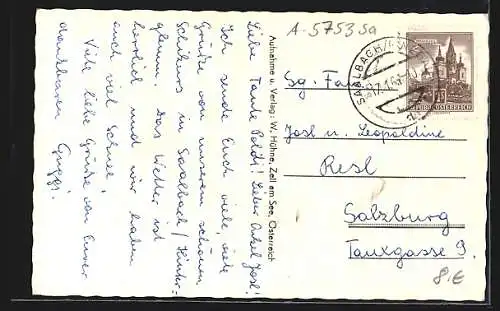 A-5753 Sa
Liebe Tante Poldi! Lieber Onkel Josl!
Ich sende Euch viele, viele
Grüße von unserem schönen
Schikurs in Saalbach/Hinter-
glemm. Das Wetter ist
herrlich und wir haben
auch viel Schnee!
Viele liebe Grüße von Eurer
dankbaren Guggi.
Aufnahme u. Verlag: W. Hühne, Zell am See, Österreich
SAALBACH
REPUBLIK ÖSTERREICH
Sg. Fam.
Josl u. Leopoldine
Resl
Salzburg
Tauxgasse 9.
8,€